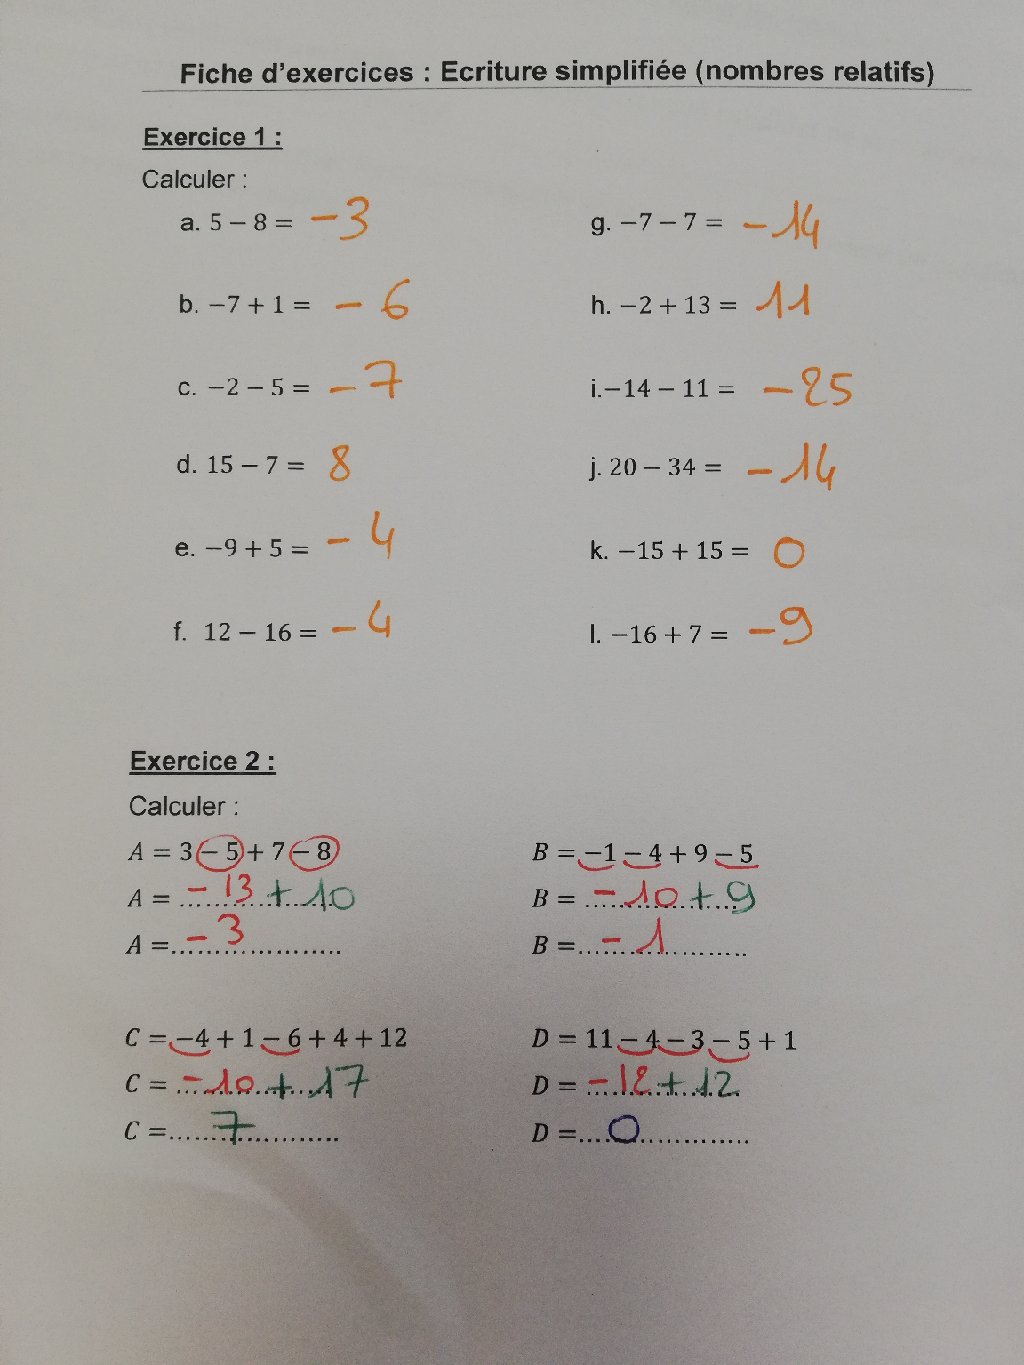 Fiche d'exercices : Ecriture simplifiée (nombres relatifs)
Exercice 1 :
Calculer :
a. 5 − 8 = −3
g. −7 − 7 = −14
b. −7 + 1 = −6
h. −2 + 13 = 11
c. −2 − 5 = −7
i.−14 − 11 = −25
d. 15 − 7 = 8
j. 20 − 34 = −14
e. −9 + 5 = −4
k. −15 + 15 = 0
f. 12 − 16 = −4
l. −16 + 7 = −9
Exercice 2 :
Calculer :
A = 3 − 5 + 7 − 8
B = −1 − 4 + 9 − 5
A = −13 + 10
B = −10 + 9
A = −3
B = −1
C = −4 + 1 − 6 + 4 + 12
D = 11 − 4 − 3 − 5 + 1
C = −10 + 17
D = −12 + 12
C = 7
D = 0